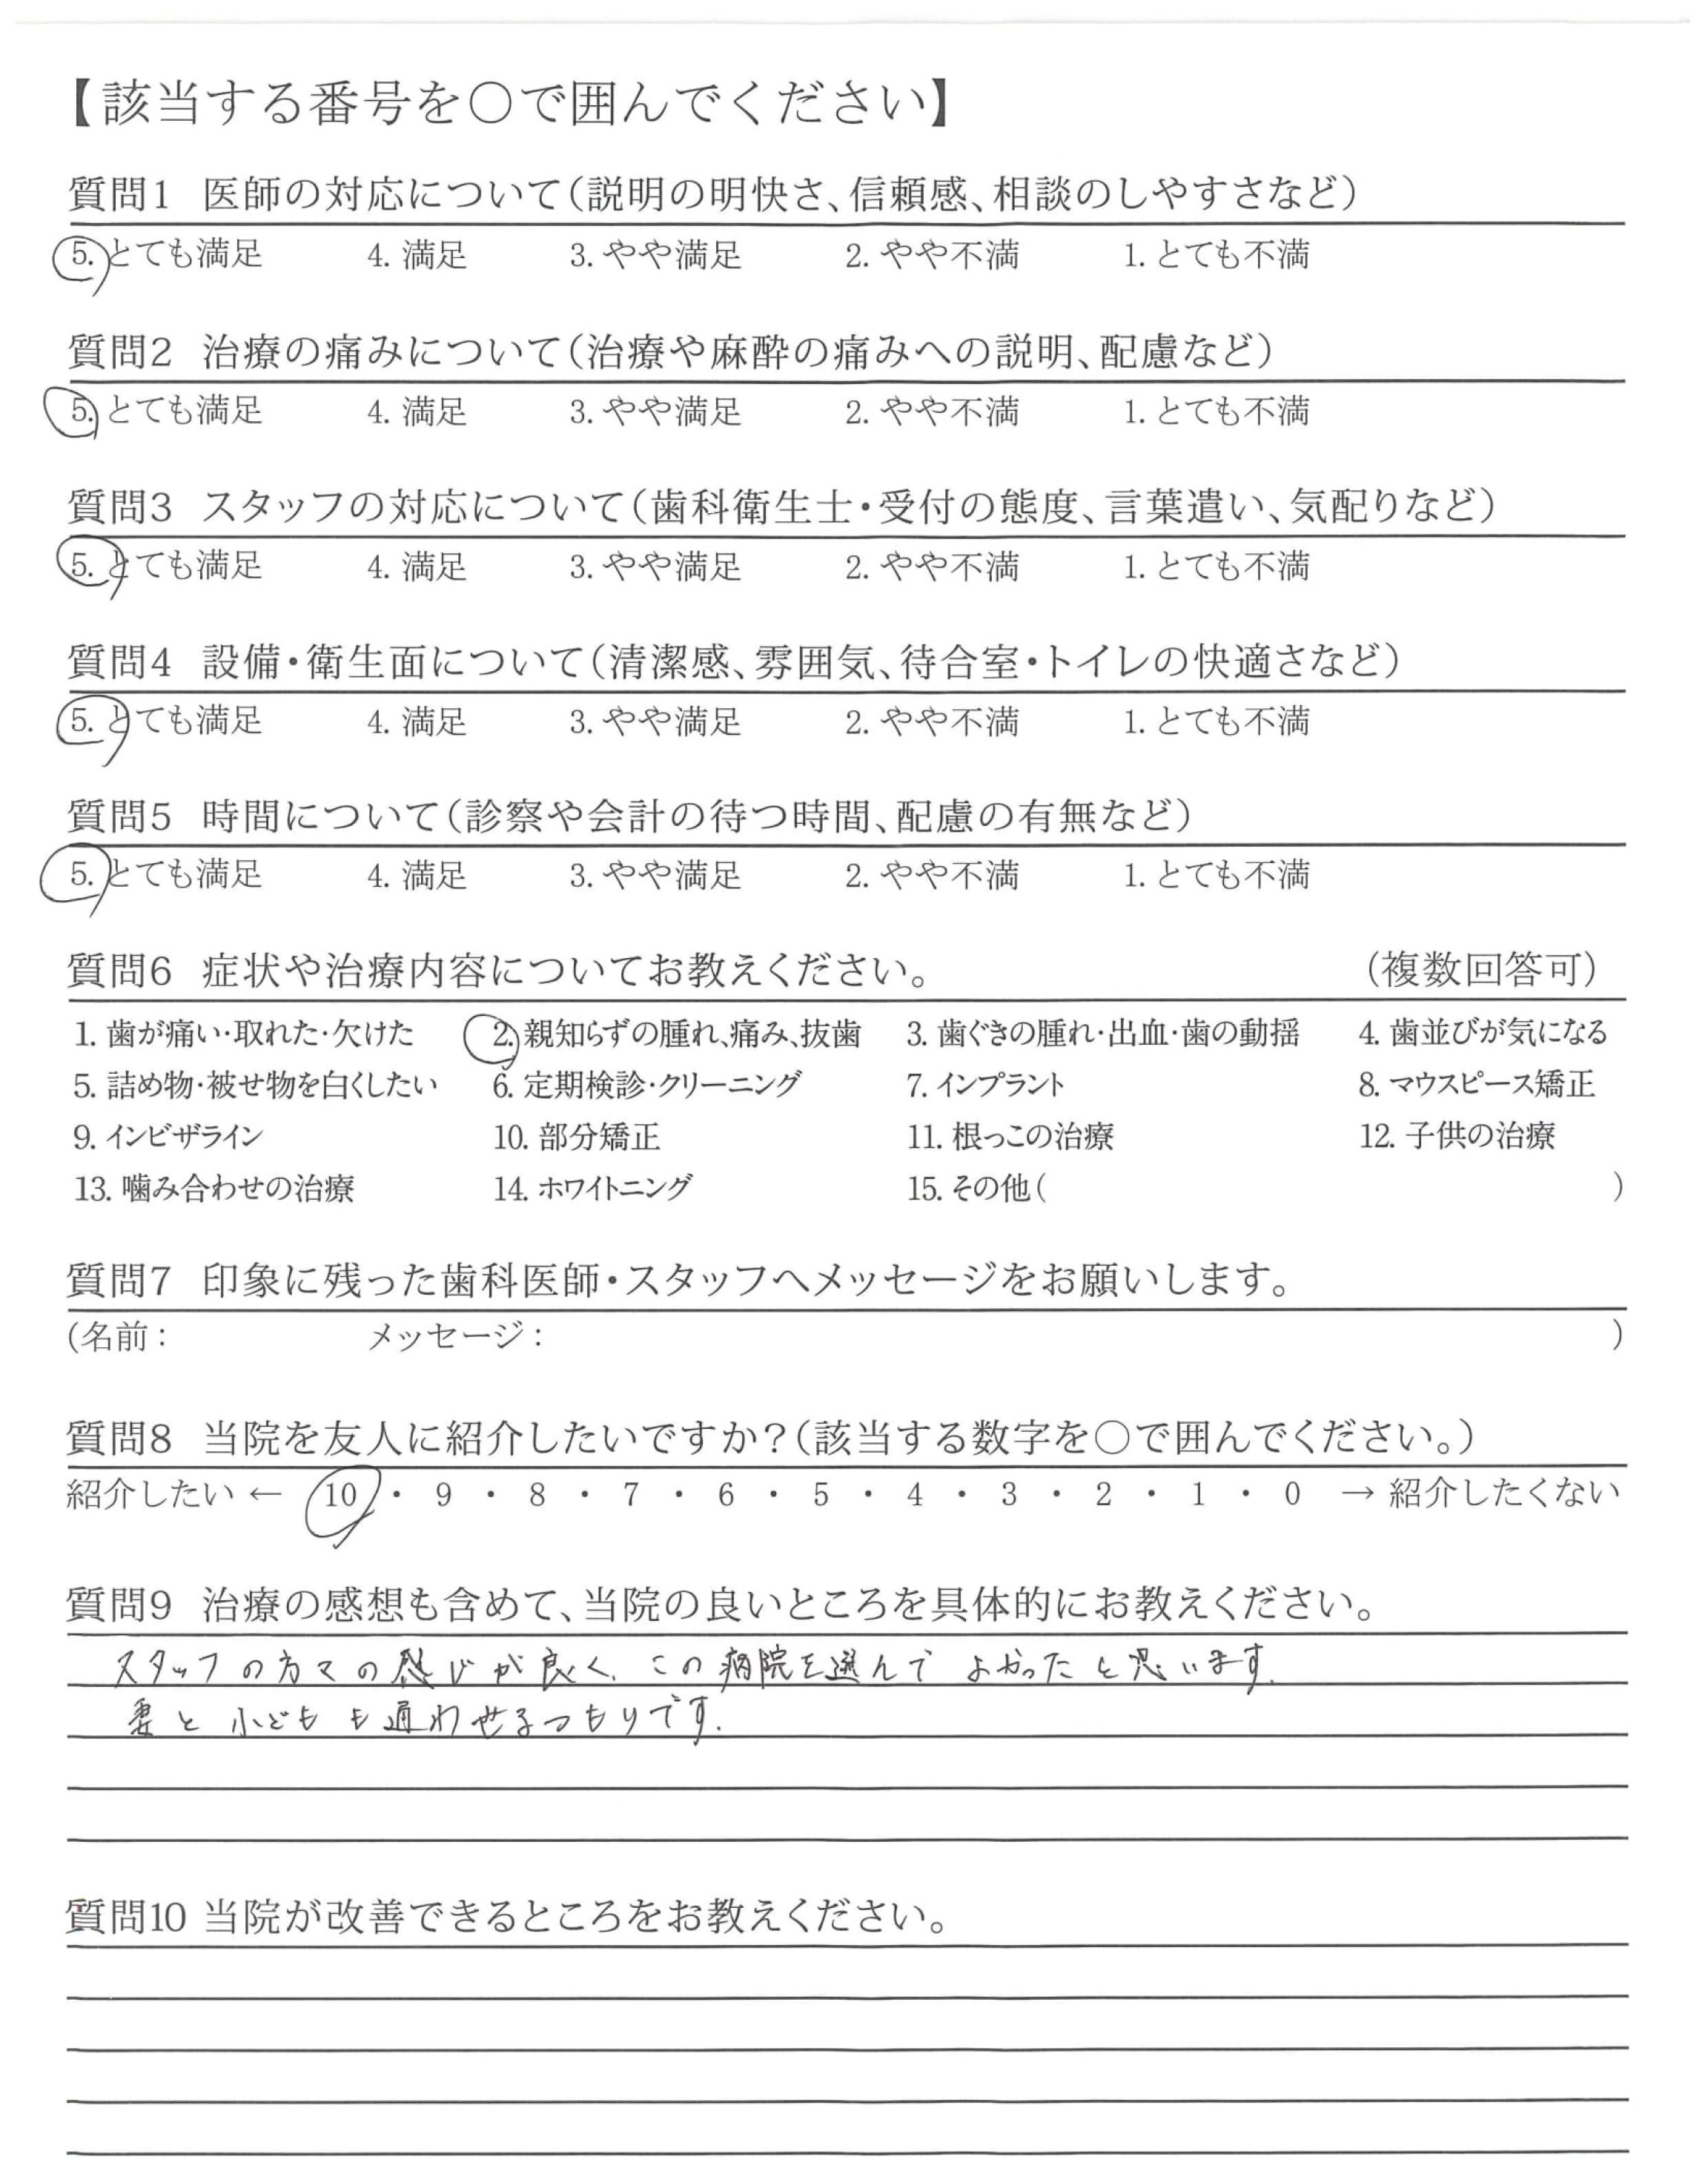 【該当する番号を〇で囲んでください】
質問1 医師の対応について(説明の明快さ、信頼感、相談のしやすさなど)
5. とても満足 4. 満足 3. やや満足 2. やや不満 1. とても不満
質問2 治療の痛みについて(治療や麻酔の痛みへの説明、配慮など)
5. とても満足 4. 満足 3. やや満足 2. やや不満 1. とても不満
質問3 スタッフの対応について(歯科衛生士・受付の態度、言葉遣い、気配りなど)
5. とても満足 4. 満足 3. やや満足 2. やや不満 1. とても不満
質問4 設備・衛生面について(清潔感、雰囲気、待合室・トイレの快適さなど)
5. とても満足 4. 満足 3. やや満足 2. やや不満 1. とても不満
質問5 時間について(診察や会計の待つ時間、配慮の有無など)
5. とても満足 4. 満足 3. やや満足 2. やや不満 1. とても不満
質問6 症状や治療内容についてお教えください。 (複数回答可)
1. 歯が痛い・取れた・欠けた 2. 親知らずの腫れ、痛み、抜歯 3. 歯ぐきの腫れ・出血・歯の動揺 4. 歯並びが気になる
5. 詰め物・被せ物を白くしたい 6. 定期検診・クリーニング 7. インプラント 8. マウスピース矯正
9. インビザライン 10. 部分矯正 11. 根っこの治療 12. 子供の治療
13. 噛み合わせの治療 14. ホワイトニング 15. その他( )
質問7 印象に残った歯科医師・スタッフへメッセージをお願いします。
(名前: メッセージ: )
質問8 当院を友人に紹介したいですか?(該当する数字を〇で囲んでください。)
紹介したい ← 10 ・ 9 ・ 8 ・ 7 ・ 6 ・ 5 ・ 4 ・ 3 ・ 2 ・ 1 ・ 0 → 紹介したくない
質問9 治療の感想も含めて、当院の良いところを具体的にお教えください。
スタッフの方々の感じが良く、この病院を選んでよかったと思います。
妻と小どもも通わせるつもりです。
質問10 当院が改善できるところをお教えください。